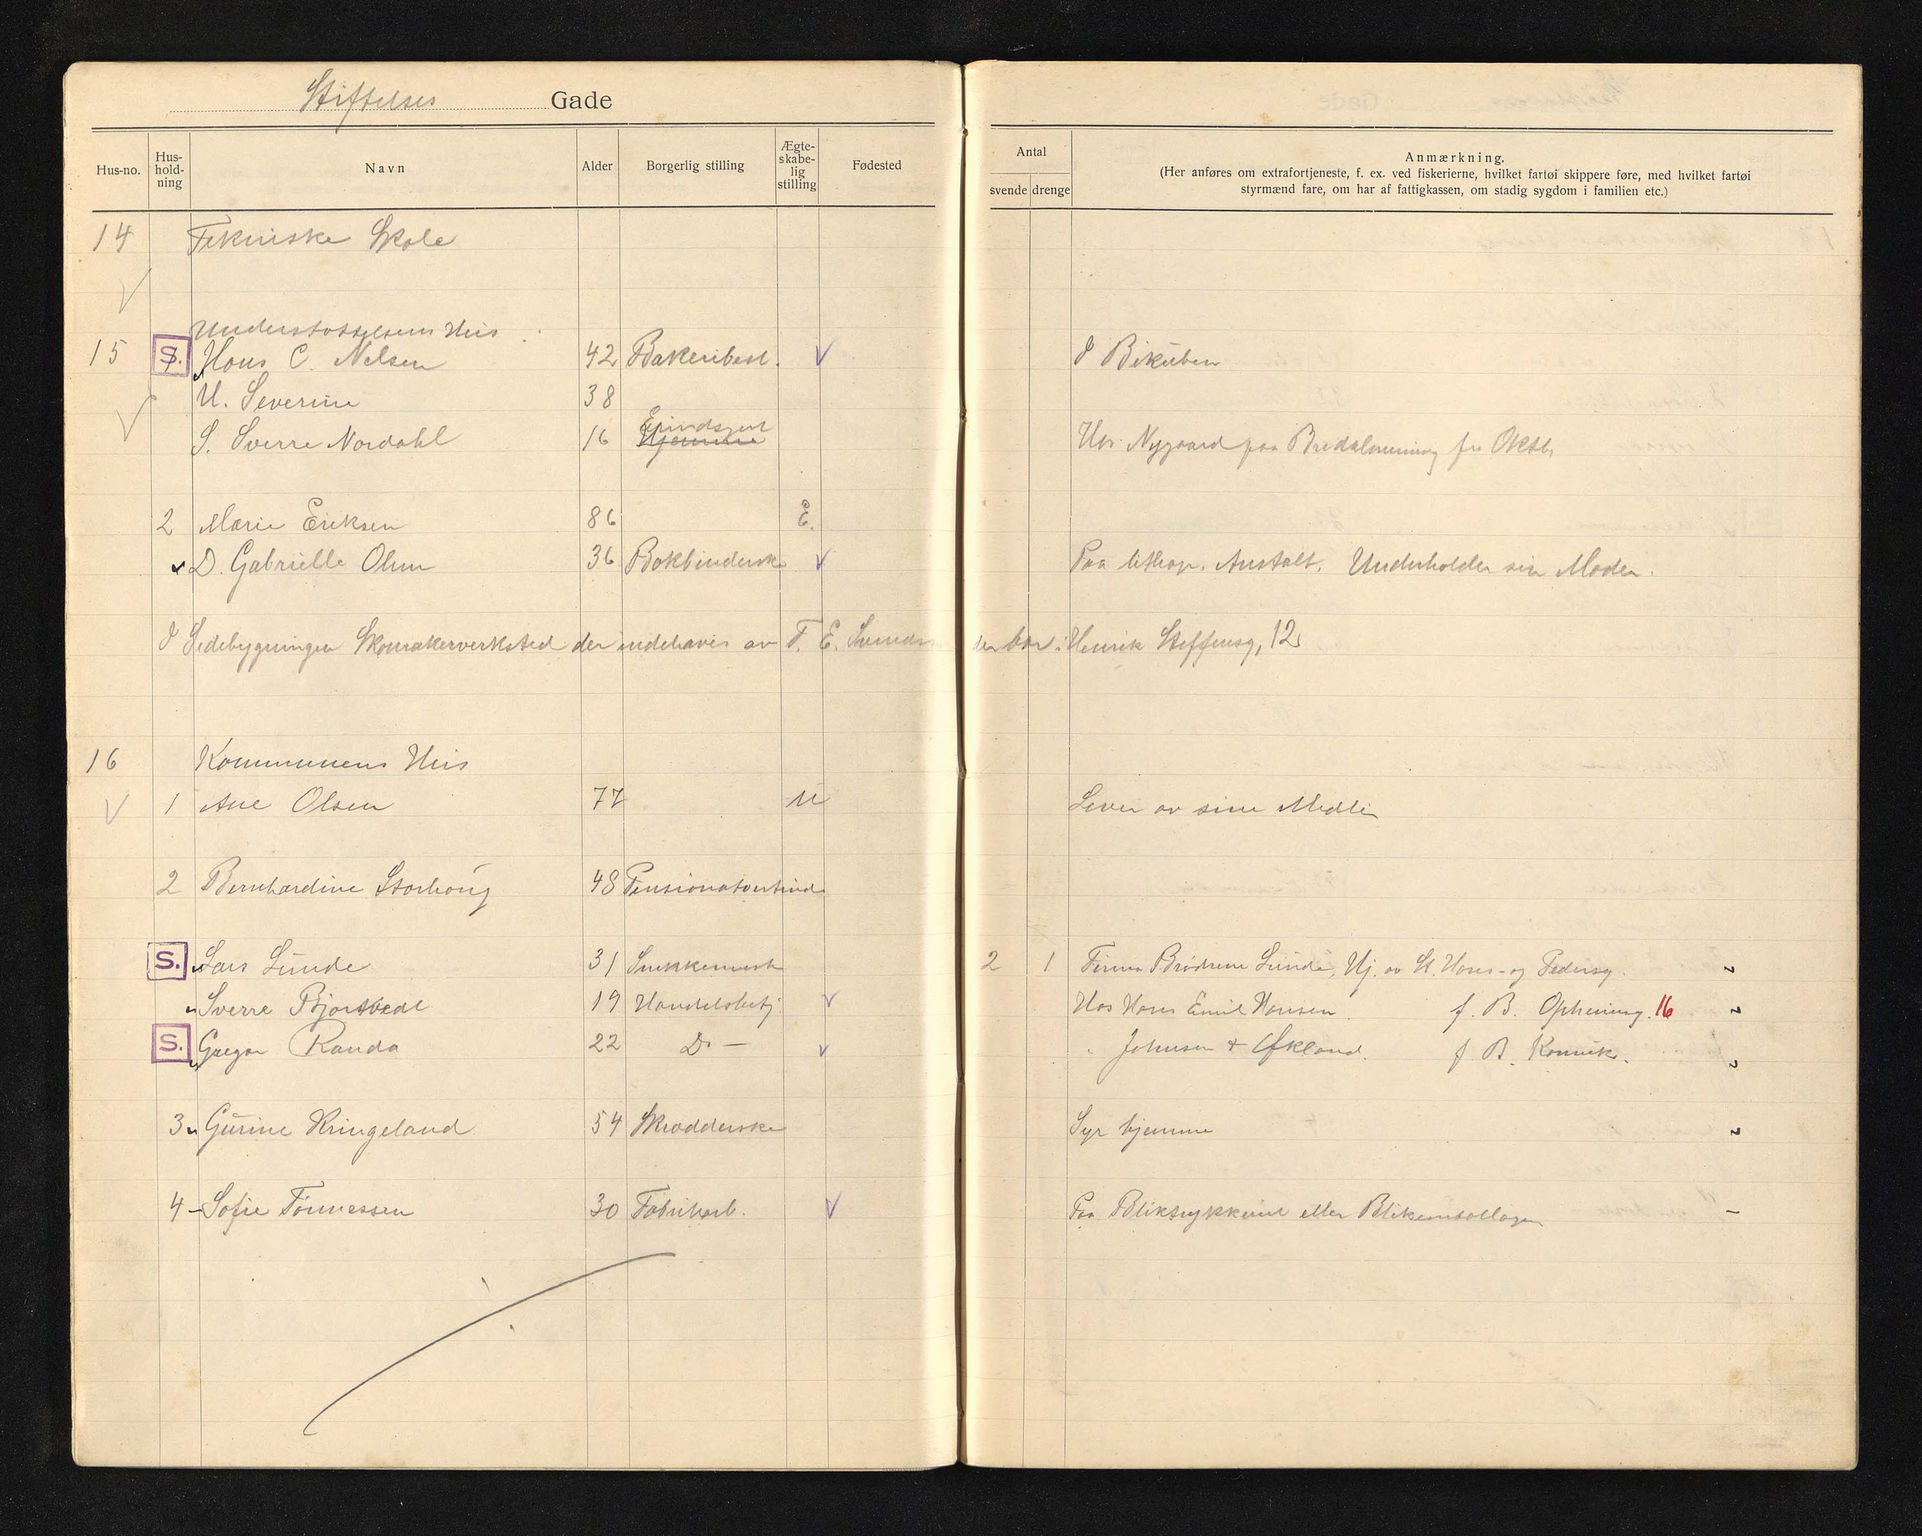 Stiftelses Gade
Hus-no. Hus-hold-ning Navn Alder Borgerlig stilling Ægte-skabe-lig stilling Fødested
Antal svende drenge
Anmærkning.
(Her anføres om extrafortjeneste, f. ex. ved fiskerierne, hvilket fartøi skippere føre, med hvilket fartøi
styrmænd fare, om har af fattigkassen, om stadig sygdom i familien etc.)
14 Tekniske Skole
Understøttelsens Hus
15 S. Hans C. Nelsen 42 Bakeribest. I Bikuben
H. Severine 38
S. Sverre Nordahl 16 Hjemme Hos Nygaard paa Bredalmining fra Oktbr
2 Marie Eriksen 86 E.
D. Gabrielle Olsen 36 Bokbinderske Paa lithogr. Anstalt. Underholder sin Moder.
I Sidebygningen Skomakerverksted der indehaves av T. E. Svends der bor i Henrik Steffensg, 12
16 Kommunens Hus
1 Ane Olsen 77 U Lever av sine Midler
2 Bernhardine Storhoug 48 Pensionatvertind
S. Lars Lunde 31 Snekkermest 2 1 Firma Brødrene Lunde, Hj. av St. Hans- og Pedersg.
Sverre Bjorkvedt 19 Handelsbetj Hos Hans Emil Hansen. f. B. Ophening. 16
S. Gregar Randa 22 Do — " Johnsen & Økland. f B. Konvik.
3 Gurine Kringeland 54 Skrædderske Syr hjemme
4 Sofie Tønnessen 30 Fabrikarb. Paa Bliktrykkeriet eller Blikemballagen